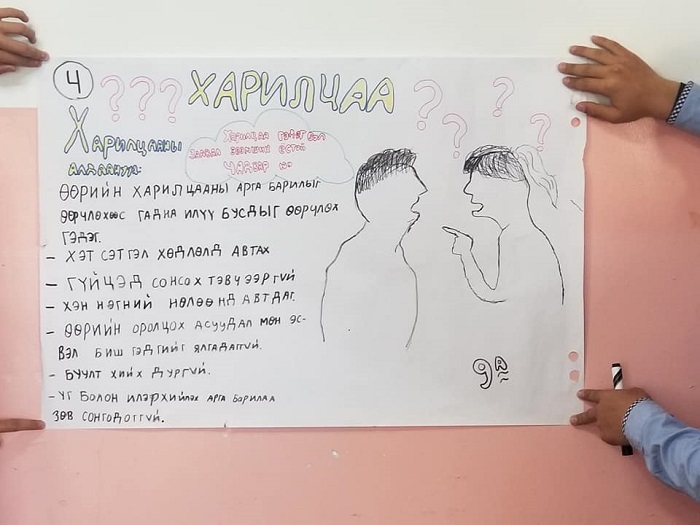 4 ??? ХАРИЛЦАА ????
Харилцааны
алдаанууд:
Харилцаа гэдэг бол
заавал эзэмших ёстой
ЧАДВАР юм
ӨӨРИЙН ХАРИЛЦААНЫ АРГА БАРИЛЫГ
ӨӨРЧЛӨХӨӨС ГАДНА ИЛҮҮ БУСДЫГ ӨӨРЧЛӨХ
ГЭДЭГ.
- ХЭТ СЭТГЭЛ ХӨДЛӨЛД АВТАХ
- ГҮЙЦЭД СОНСОХ ТЭВЧЭЭРГҮЙ
- ХЭН НЭГНИЙ НӨЛӨӨНД АВТДАГ.
- ӨӨРИЙН ОРОЛЦОХ АСУУДАЛ МӨН ЭС-
ВЭЛ БИШ ГЭДГИЙГ ЯЛГАДАГГҮЙ.
- БУУЛТ ХИЙХ ДУРГҮЙ.
- ҮГ БОЛОН ИЛЭРХИЙЛЭХ АРГА БАРИЛАА
ЗӨВ СОНГОДОГГҮЙ.